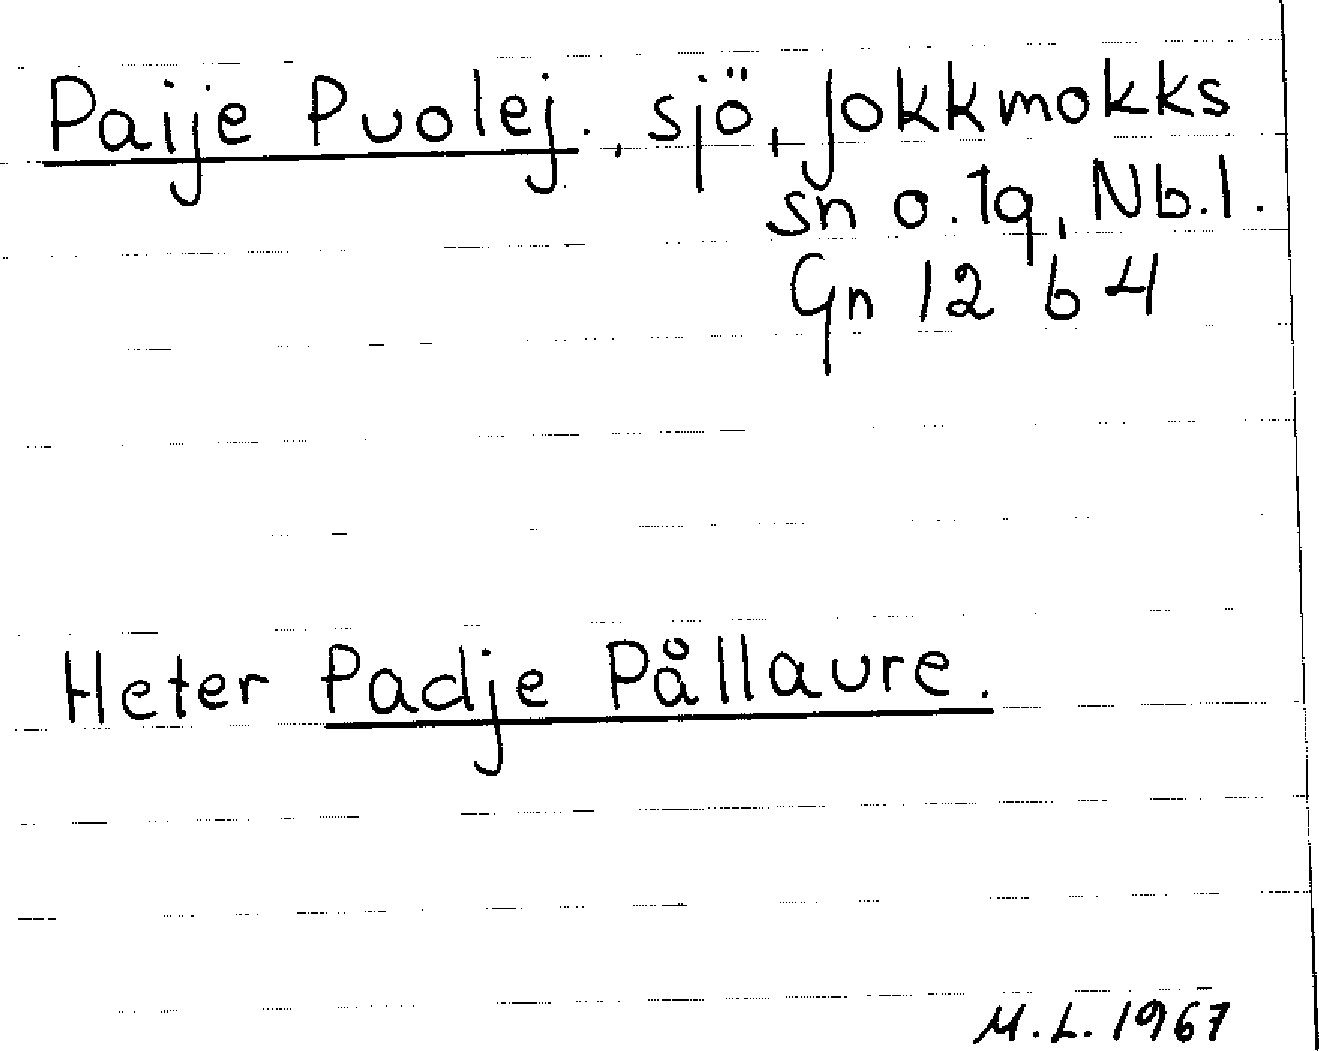 Paije Puolej., sjö, Jokkmokks
sn o. lq, Nb.l.
Gn 12 b 4
Heter Padje Pållaure.
M.L. 1967